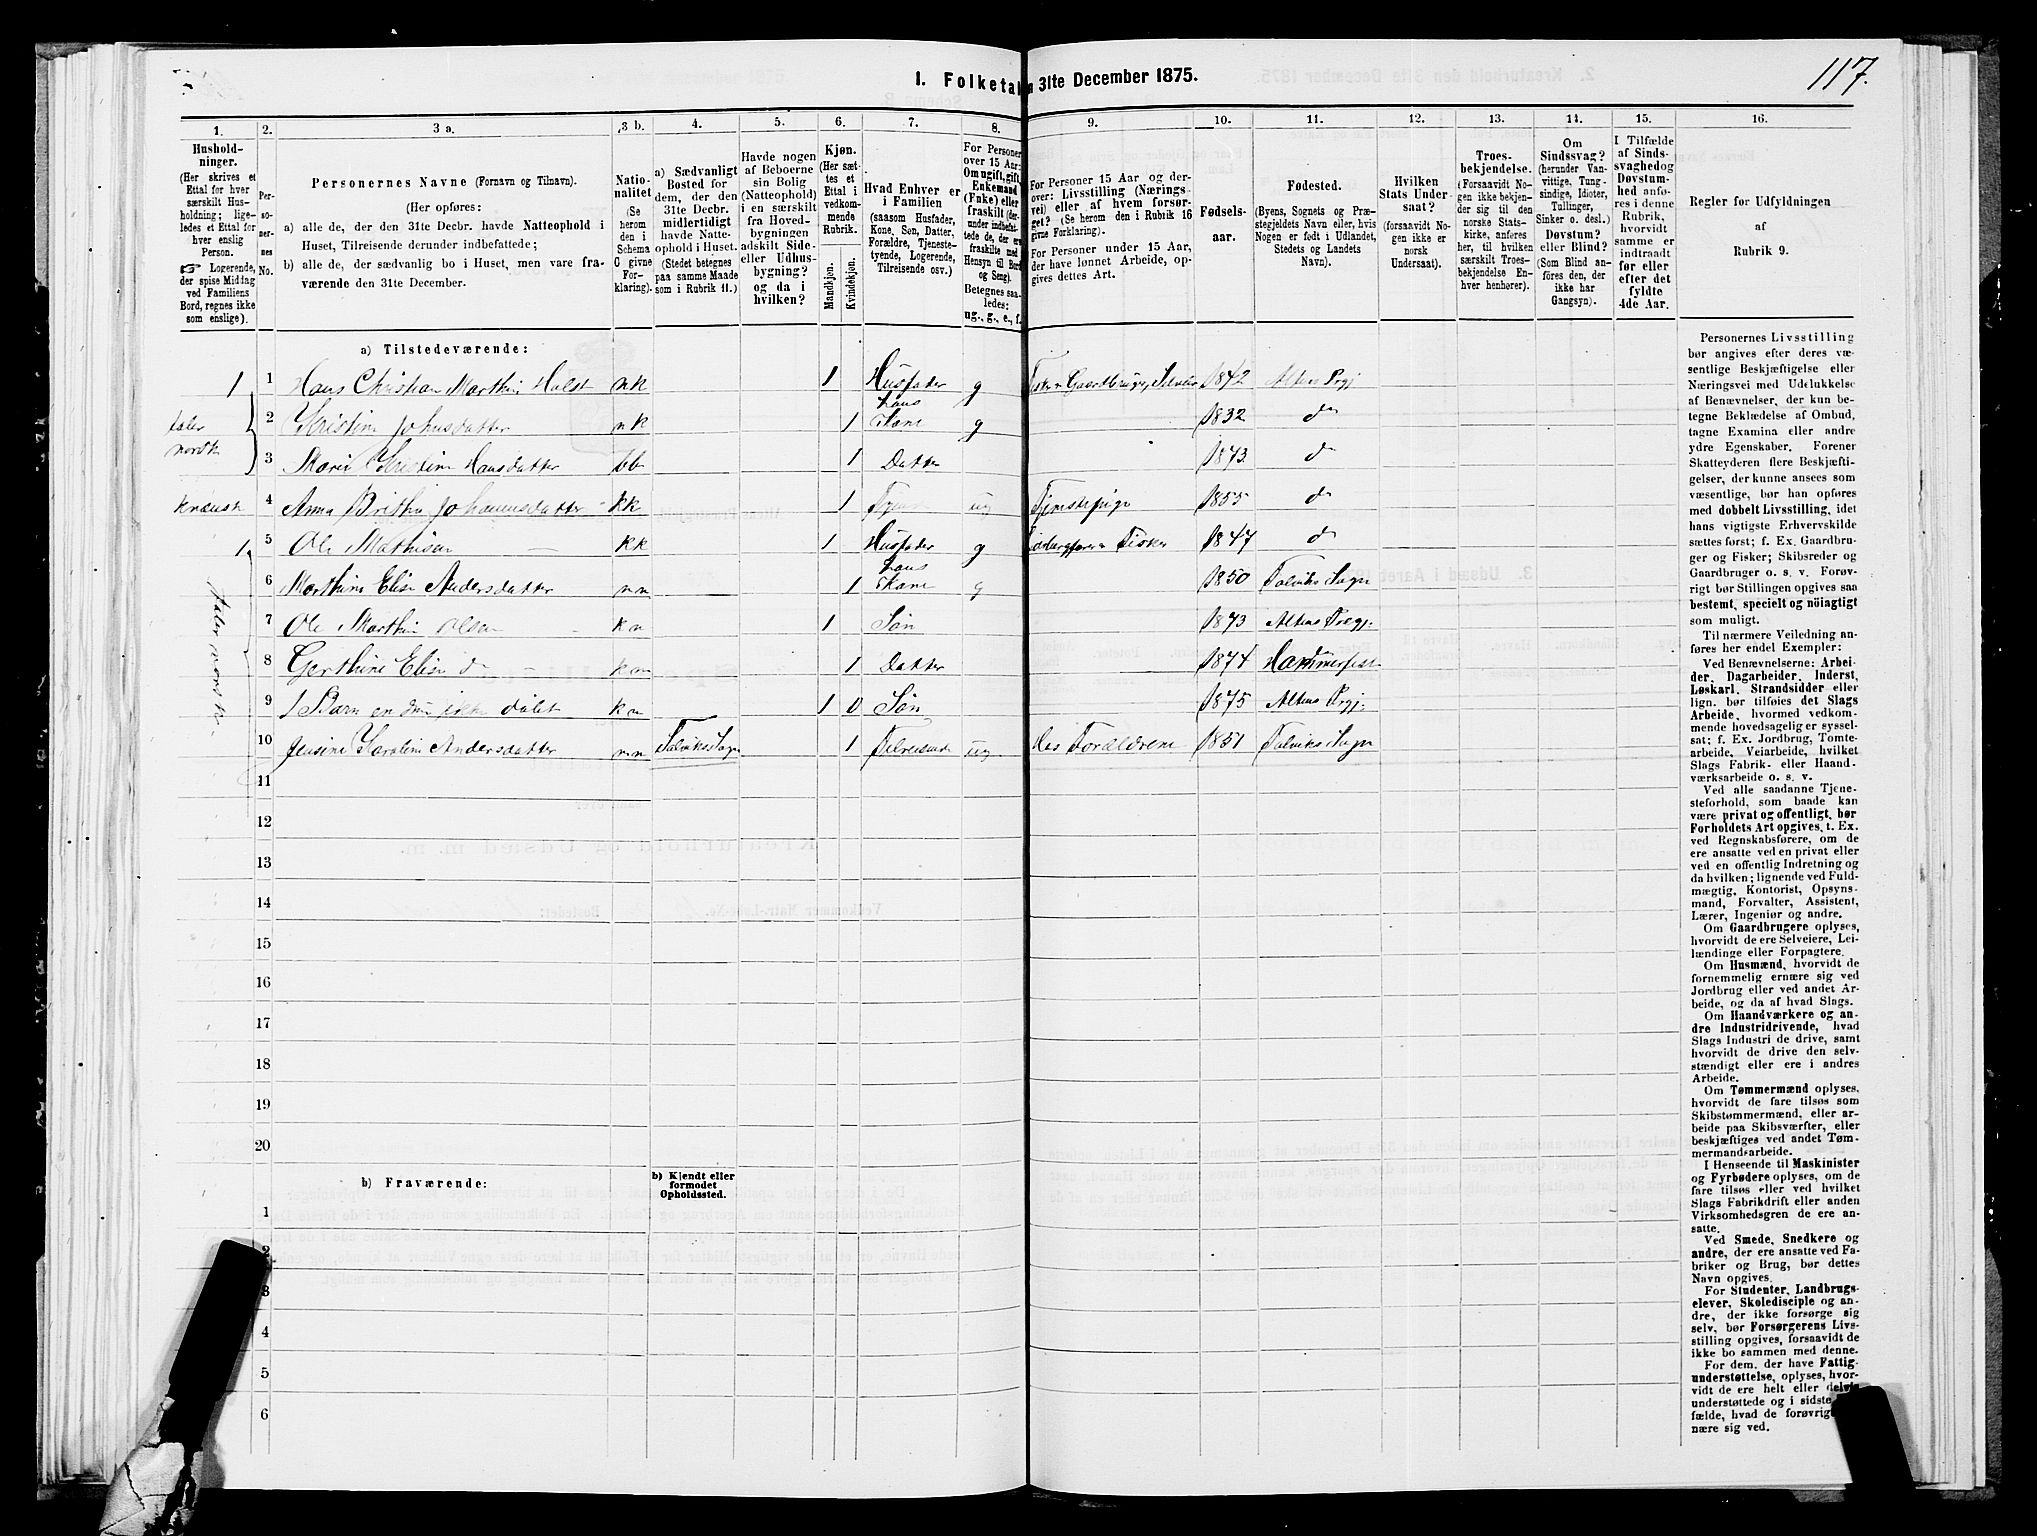 117.
I. Folketal
31te December 1875.
1. 2. 3 a. 3 b. 4. 5. 6. 7. 8. 9. 10. 11. 12. 13. 14. 15. 16.
Hushold-
ninger.
(Her skrives et
Ettal for hver
særskilt Hus-
holdning; lige-
ledes et Ettal for
hver enslig
Person.
Logerende,
der spise Middag
ved Familiens
Bord, regnes ikke
som enslige).
Per-
so-
ner-
nes
No.
Personernes Navne (Fornavn og Tilnavn).
(Her opføres:
a) alle de, der den 31te Decbr. havde Natteophold i
Huset, Tilreisende derunder indbefattede;
b) alle de, der sædvanlig bo i Huset, men vare fra-
værende den 31te December.
Natio-
nalitet
(Se
herom
den i
Schema
C givne
For-
klaring).
a) Sædvanligt
Bosted for
dem, der den
31te Decbr.
midlertidigt
havde Natte-
ophold i Huset.
(Stedet betegnes
paa samme Maade
som i Rubrik 11.)
Havde nogen
af Beboerne
sin Bolig
(Natteophold)
i en særskilt
fra Hoved-
bygningen
adskilt Side-
eller Udhus-
bygning?
og da i
hvilken?
Kjøn.
(Her sæt-
tes et
Ettal i
vedkom-
mende
Rubrik.
Mandkjøn.
Kvindekjøn.
Hvad Enhver er
i Familien
(saasom Husfader,
Kone, Søn, Datter,
Forældre, Tjeneste-
tyende, Logerende,
Tilreisende osv.)
For Personer
over 15 Aar:
Om ugift, gift,
Enkemand
(Enke) eller
fraskilt (der-
under indbefat-
tede de, der ere
fraskilte med
Hensyn til Bord
og Seng).
Betegnes saa-
ledes:
ug., g., e., f.
For Personer 15 Aar og der-
over: Livsstilling (Nærings-
vei) eller af hvem forsør-
get? (Se herom den i Rubrik 16
givne Forklaring).
For Personer under 15 Aar,
der have lønnet Arbeide, op-
gives dettes Art.
Fødsels-
aar.
Fødested.
(Byens, Sognets og Præ-
stegjeldets Navn eller, hvis
Nogen er født i Udlandet,
Stedets og Landets
Navn).
Hvilken
Stats Under-
saat?
(forsaavidt No-
gen ikke er
norsk
Undersaat).
Troes-
bekjendelse.
(Forsaavidt No-
gen ikke bekjen-
der sig til den
norske Stats-
kirke, anføres
her, til hvilken
særskilt Troes-
bekjendelse En-
hver henhører).
Om
Sindssvag?
(herunder Van-
vittige, Tung-
sindige, Idioter,
Tullinger,
Sinker o. desl.)
Døvstum?
eller Blind?
(Som Blind an-
føres den, der
ikke har
Gangsyn).
I Tilfælde
af Sinds-
svaghed og
Døvstum-
hed anfø-
res i denne
Rubrik,
hvorvidt
samme er
indtraadt
før eller
efter det
fyldte
4de Aar.
Regler for Udfyldningen
af
Rubrik 9.
a) Tilstedeværende:
1 1 Hans Christian Marthin Holst nk 1 Husfader g Gaardbruger, Selveier 1842 Altens Prgj
taler
norsk
2 Kristine Johnsdatter nk 1 hans Kone g 1832 do
3 Maria Kristine Hansdatter bb 1 Datter 1873 do
kvænsk 4 Anna Britha Johannesdatter kk 1 ug Tjenestepige 1855 do
1 5 Ole Mathisen kk 1 Husfader g Fisker 1847 do
taler norsk
6 Marthine Elise Andersdatter nn 1 hans Kone g 1850 Talviks Sogn
7 Ole Marthin Olsen kn 1 Søn 1873 Altens Prgj.
8 Gerthine Elise do kn 1 Datter 1874 Hammerfest
9 1 Barn en du ikke døbt kn 1 0 Søn 1875 Altens Prgj.
10 Jensine Karoline Andersdatter nn Talviks Sogn 1 Tilreisende ug Hos Forældrene 1851 Talviks Sogn
11
12
13
14
15
16
17
18
19
20
b) Fraværende:
b) Kjendt eller
formodet
Opholdssted.
1
2
3
4
5
6
Personernes Livsstilling
bør angives efter deres væ-
sentlige Beskjæftigelse eller
Næringsvei med Udelukkelse
af Benævnelser, der kun be-
tegne Beklædelse af Ombud,
tagne Examina eller andre
ydre Egenskaber. Forener
Skatteyderen flere Beskjæfti-
gelser, der kunne ansees som
væsentlige, bør han opføres
med dobbelt Livsstilling, idet
hans vigtigste Erhvervskilde
sættes først; f. Ex. Gaardbru-
ger og Fisker; Skibsreder og
Gaardbruger o. s. v. Forøv-
rigt bør Stillingen opgives saa
bestemt, specielt og nöiagtigt
som muligt.
Til nærmere Veiledning an-
føres her endel Exempler:
Ved Benævnelserne: Arbei-
der, Dagarbeider, Inderst,
Løskarl, Strandsidder eller
lign. bør tilføies det Slags
Arbeide, hvormed vedkom-
mende hovedsagelig er syssel-
sat; f. Ex. Jordbrug, Tomte-
arbeide, Veiarbeide, hvilket
Slags Fabrik- eller Haand-
værksarbeide o. s. v.
Ved alle saadanne Tjene-
steforhold, som baade kan
være privat og offentligt, bør
Forholdets Art opgives, t. Ex.
ved Regnskabsførere, om de
ere ansatte ved en privat eller
ved en offentlig Indretning og
da hvilken; lignende ved Fuld-
mægtig, Kontorist, Opsyns-
mand, Forvalter, Assistent,
Lærer, Ingeniør og andre.
Om Gaardbrugere oplyses,
hvorvidt de ere Selveiere, Lei-
lændinge eller Forpagtere.
Om Husmænd, hvorvidt de
fornemmelig ernære sig ved
Jordbrug eller ved andet Ar-
beide, og da af hvad Slags.
Om Haandværkere og an-
dre Industridrivende, hvad
Slags Industri de drive, samt
hvorvidt de drive den selv-
stændigt eller ere i andres
Arbeide.
Om Tømmermænd oplyses,
hvorvidt de fare tilsøs som
Skibstømmermænd, eller ar-
beide paa Skibsværfter, eller
beskjæftiges ved andet Tøm-
mermandsarbeide.
I Henseende til Maskinister
og Fyrbødere oplyses, om de
fare tilsøs eller ved hvilket
Slags Fabrikdrift eller anden
Virksomhedsgren de ere an-
satte.
Ved Smede, Snedkere og
andre, der ere ansatte ved Fa-
briker og Brug, bør dettes
Navn opgives.
For Studenter, Landbrugs-
elever, Skoledisciple og an-
dre, der ikke forsørge sig
selv, bør Forsørgerens Livs-
stilling opgives, forsaavidt de
ikke bo sammen med denne.
For dem, der have Fattig-
understøttelse, oplyses, hvor-
vidt de ere helt eller delvis
understøttede og i sidste
fælde, hvad de forøvrigt
nære sig ved.